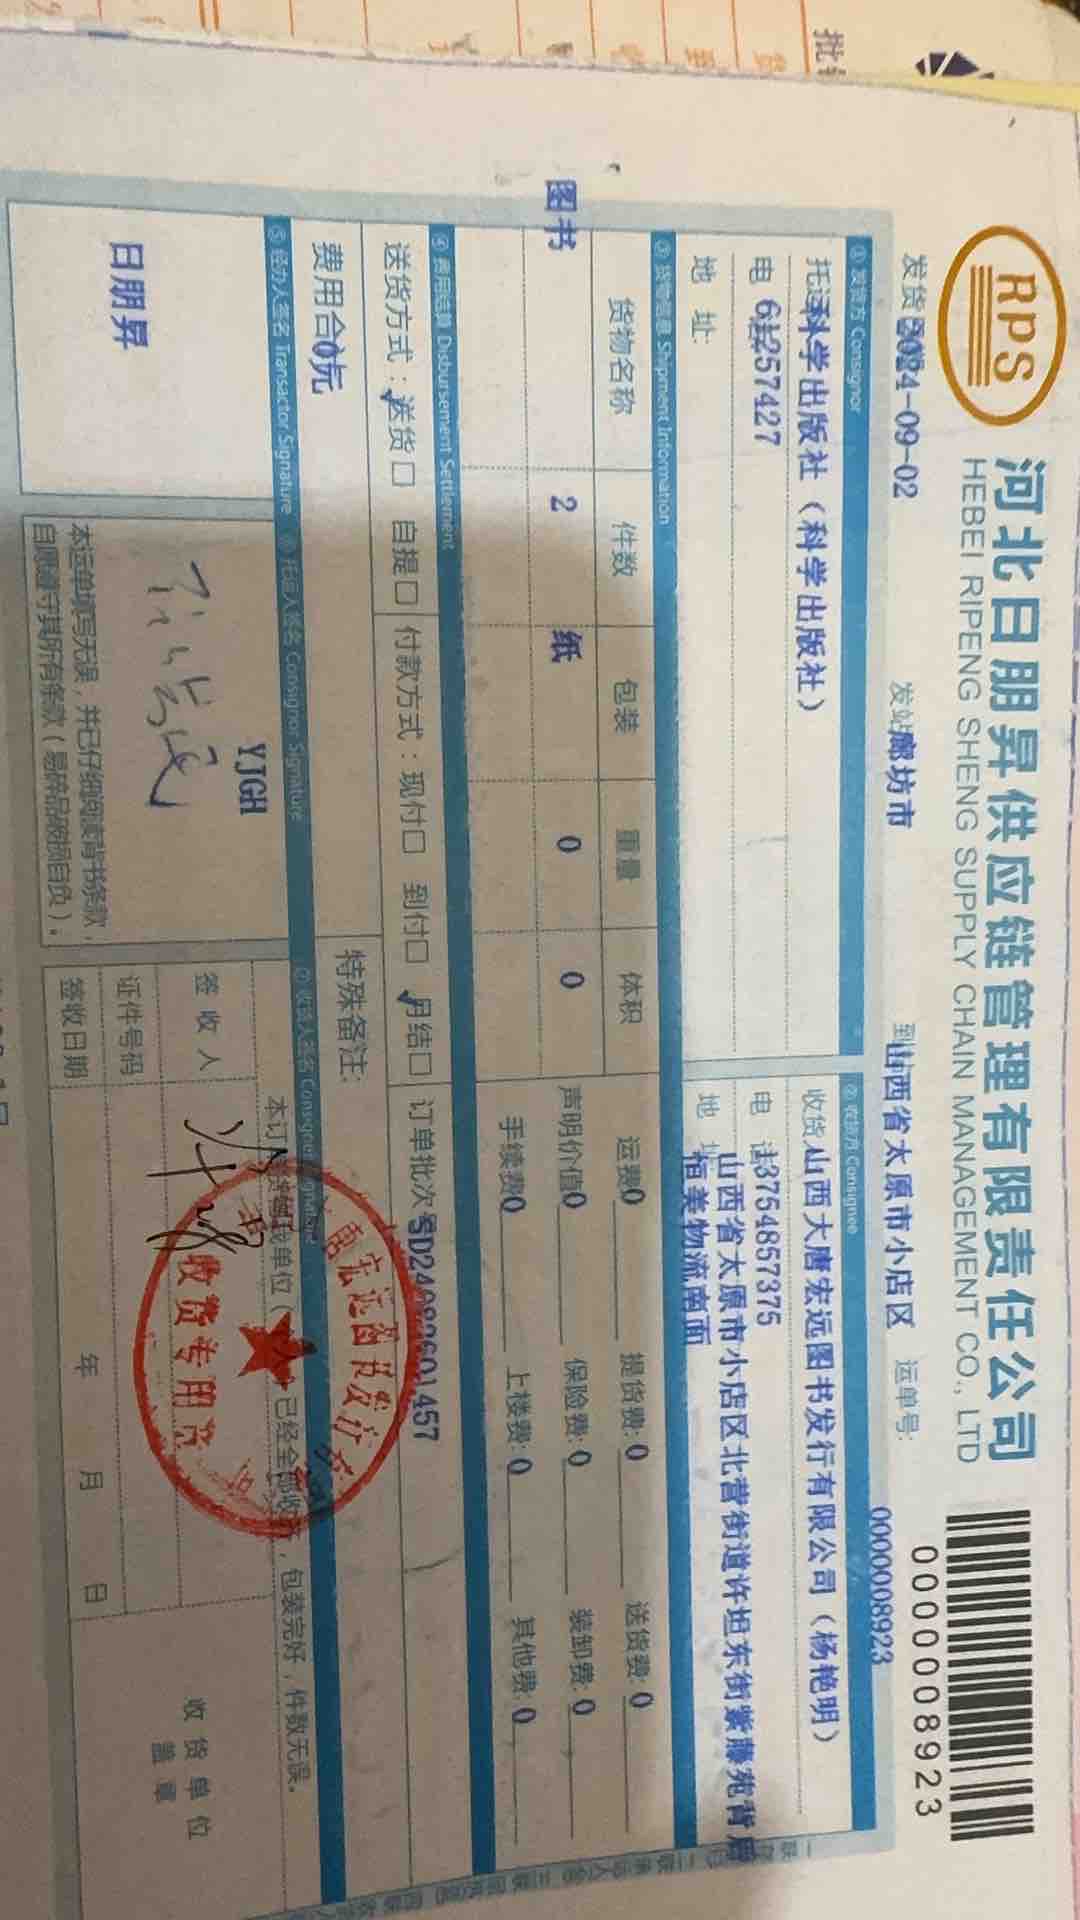 RPS
河北日朋昇供应链管理有限责任公司
HEBEI RIPENG SHENG SUPPLY CHAIN MANAGEMENT CO., LTD
0000008923
发货 2024-09-02 发站 廊坊市 到 山西省太原市小店区 运单号: 0000008923
① 发货方 Consignor
② 收货方 Consignee
托运 科学出版社（科学出版社）
收货 山西大唐宏远图书发行有限公司（杨艳明）
电 61257427
电 话 13754857375
地 址:
地 址 山西省太原市小店区北营街道许坦东街紫藤苑背后
恒美物流南面
③ 货物信息 Shipment Information
货物名称 件数 包装 重量 体积
运费0 提货费: 0 送货费: 0
图书 2 纸 0 0
声明价值0 保险费: 0 装卸费: 0
手续费0 上楼费: 0 其他费: 0
④ 费用结算 Disbursement Settlement
送货方式：送货☐ 自提☐ 付款方式：现付☐ 到付☐ 月结☐ 订单批次号SD24082601457
费用合 0元
特殊备注:
⑤ 经办人签名 Transactor Signature
⑥ 托运人签名 Consignor Signature
⑦ 收货人签名 Consignee Signature
日朋昇
YJGH
本运单填写无误，并已仔细阅读背书条款，
自愿遵守其所有条款（易碎品破损自负）。
已经全部收 ，包装完好，件数无误。
签 收 人
证件号码
签收日期
年 月 日
收货单位
盖 章
收货专用章